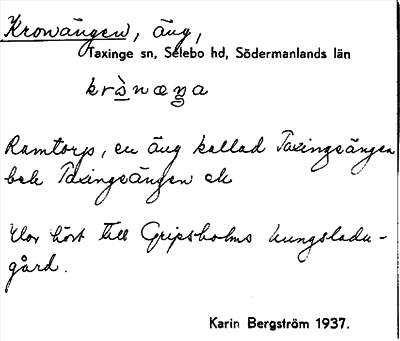 Kronängen, äng,
Taxinge sn, Selebo hd, Södermanlands län
krànæŋa
Ramtorp, en äng kallad Taxingeängen
bek Taxingeängen ek
Har hört till Gripsholms kungsladu-
gård.
Karin Bergström 1937.